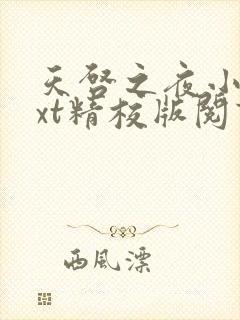 天啓之夜小
xt精校版閱
西風漂